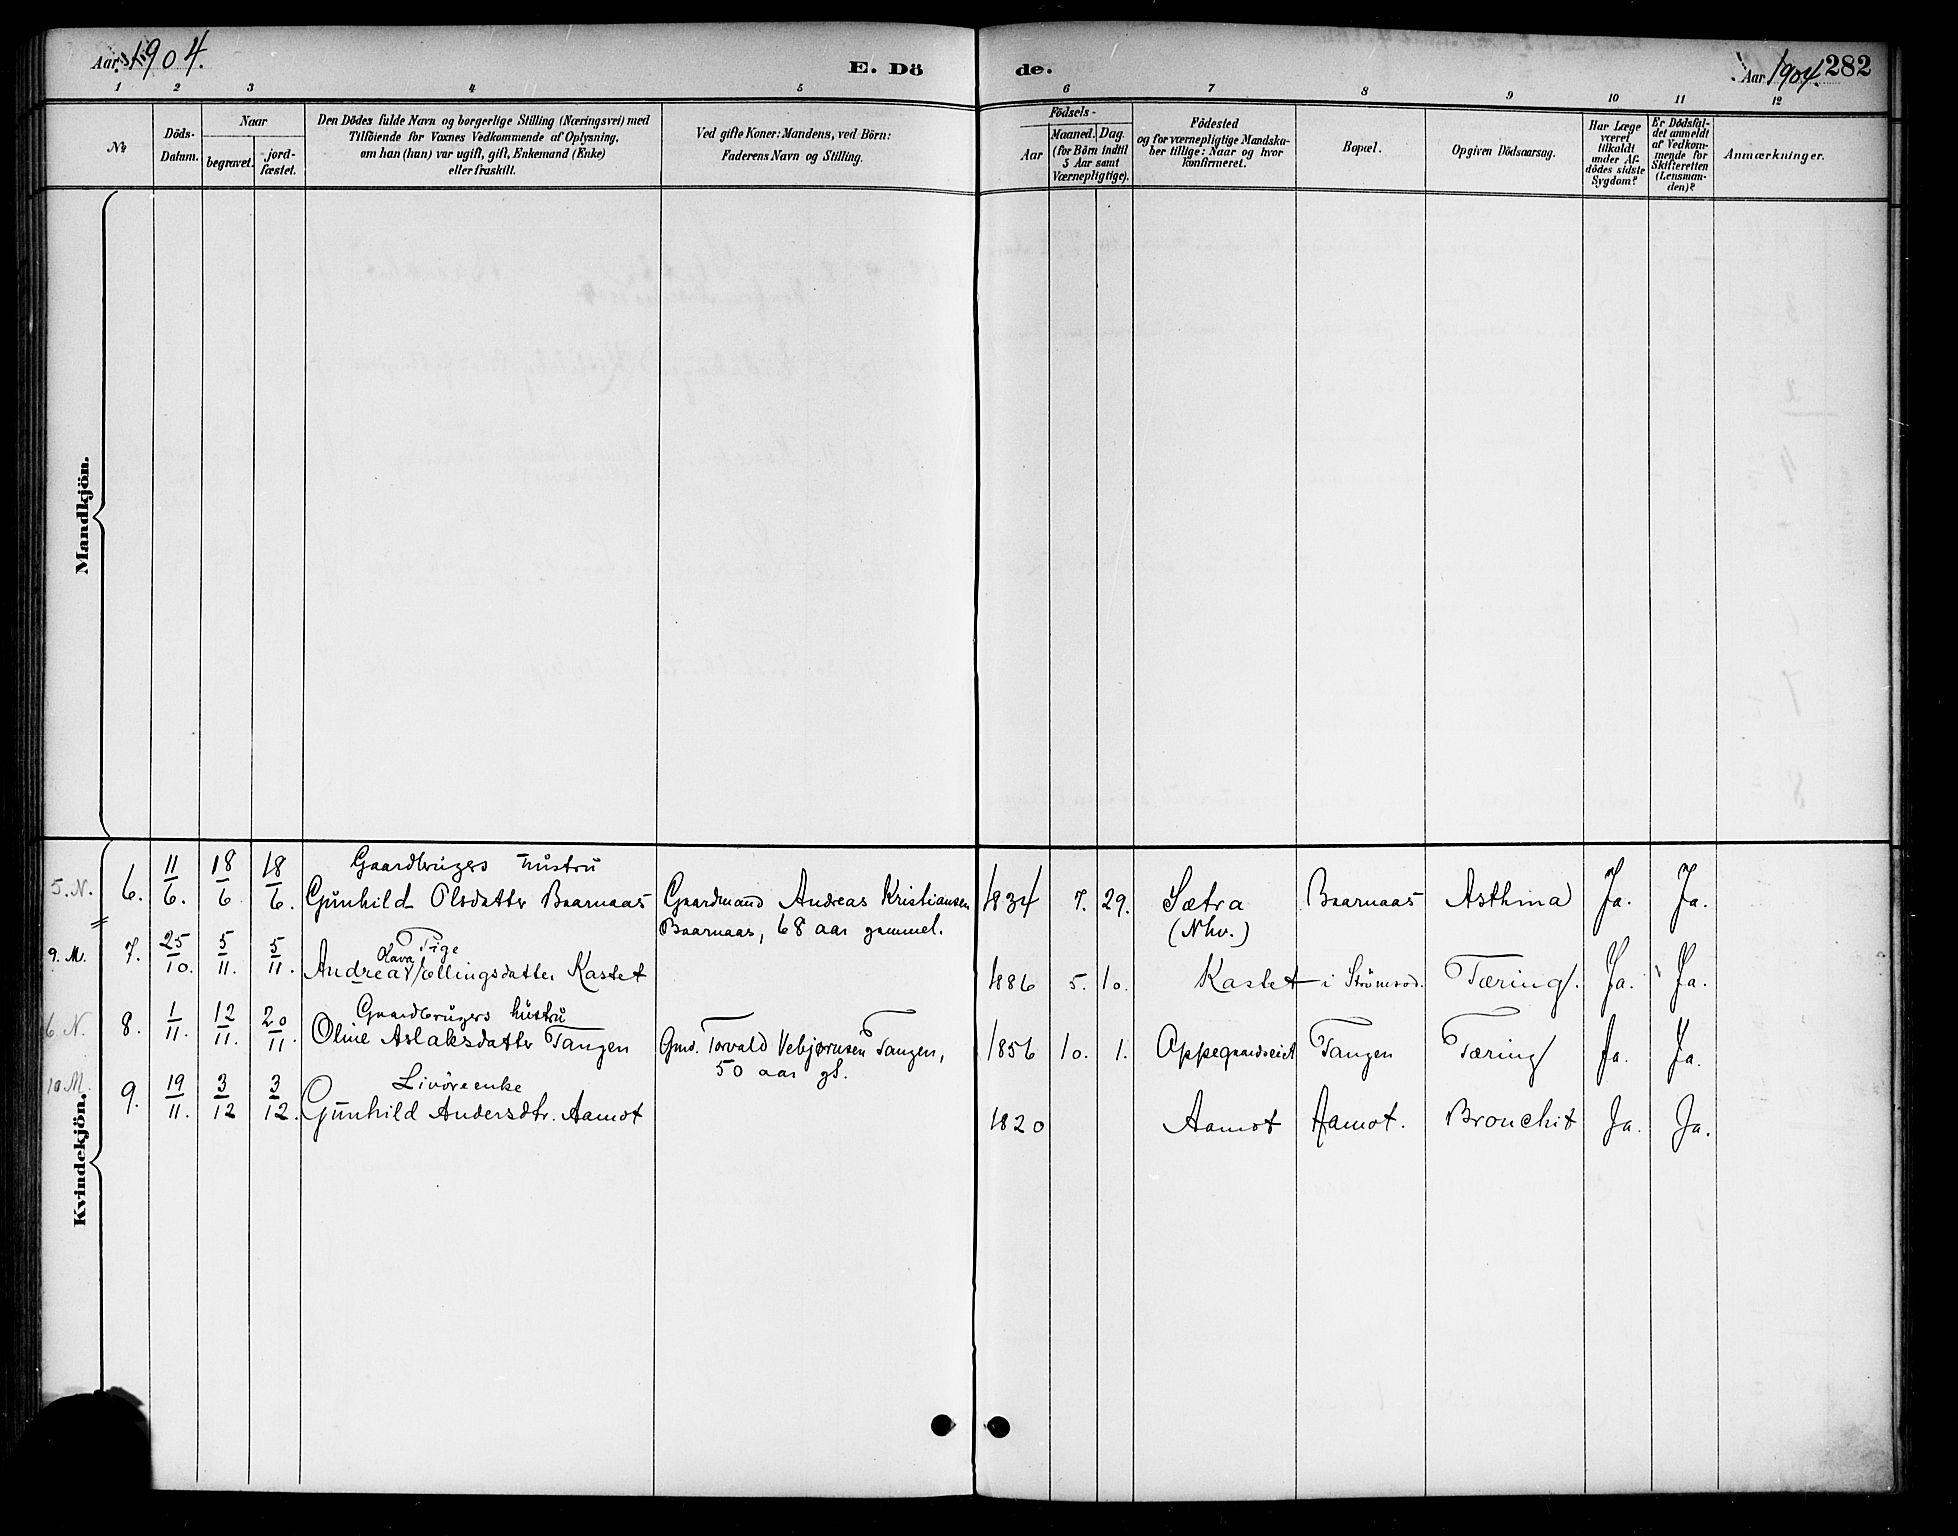 Aar 1904.
E. Dö
de.
Aar 1904. 282
1 2 3 4 5 6 7 8 9 10 11 12
No
Döds-
Datum.
Naar
begravet.
jord-
fæstet.
Den Dödes fulde Navn og borgerlige Stilling (Næringsvei) med
Tilföiende for Voxnes Vedkommende af Oplysning,
om han (hun) var ugift, gift, Enkemand (Enke)
eller fraskilt.
Ved gifte Koner: Mandens, ved Börn:
Faderens Navn og Stilling.
Födsels-
Aar
Maaned. Dag.
(for Börn indtil
5 Aar samt
Værnepligtige).
Födested
og for værnepligtige Mandska-
ber tillige: Naar og hvor
konfirmeret.
Bopæl.
Opgiven Dödsaarsag.
Har Læge
været
tilkaldt
under Af-
dödes sidste
Sygdom?
Er Dödsfal-
det anmeldt
af Vedkom-
mende for
Skifteretten
(Lensman-
den)?
Anmærkninger.
Mandkjön.
Kvindekjön.
Gaardbrugers hustru
5. N. 6. 11/6. 18/6 18/6. Gunhild Olsdatter Baarnaas Gaardmand Andreas Kristiansen 1834 7. 29. Sætra Baarnaas Asthma Ja. Ja.
Baarnaas, 68 aar gammel. (Nhv.)
Pige
Olava
9. M. 7. 25/10. 5/11. 5/11. Andrea Kastet 1886 5. 10. Kastet i Strømsod. Tæring. Ja. Ja.
Gaardbrugers hustru
6. N. 8. 1/11. 12/11. 20/11 Oline Aslaksdatter Tangen Gmd. Torvald Vebjørnsen Tangen, 1856 10. 1. Oppegaardseiet Tangen Tæring Ja. Ja.
50 aar gl.
Livöreenke
10. M. 9. 19/11. 3/12 3/12. Gunhild Andersdtr. Aamot 1820 Aamot Aamot. Bronchit Ja. Ja.